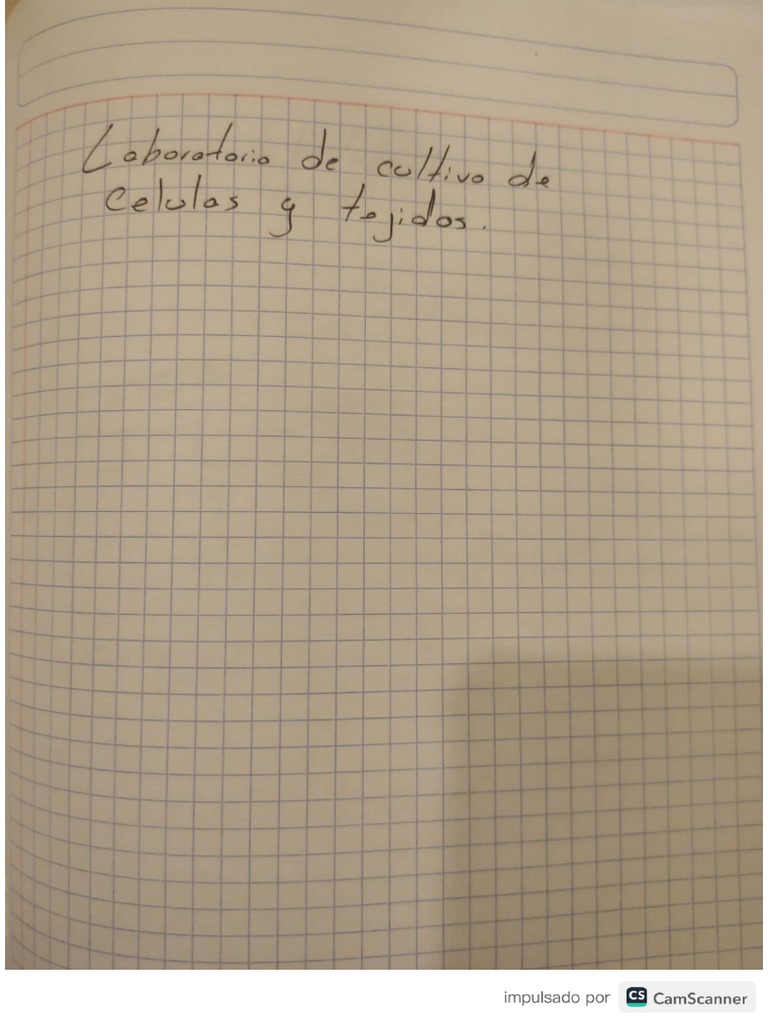 Laboratorio de cultivo de
Celulas y tejidos.
impulsado por CS CamScanner